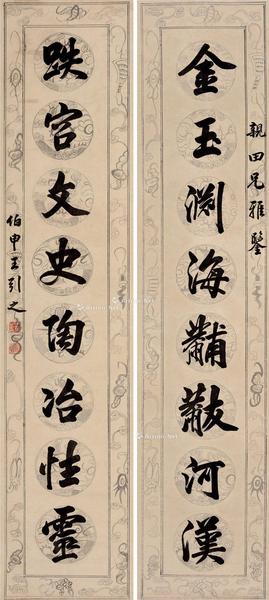 親田兄雅鑒
金玉淵海黼黻河漢
跌宕文史陶冶性靈
伯申王引之